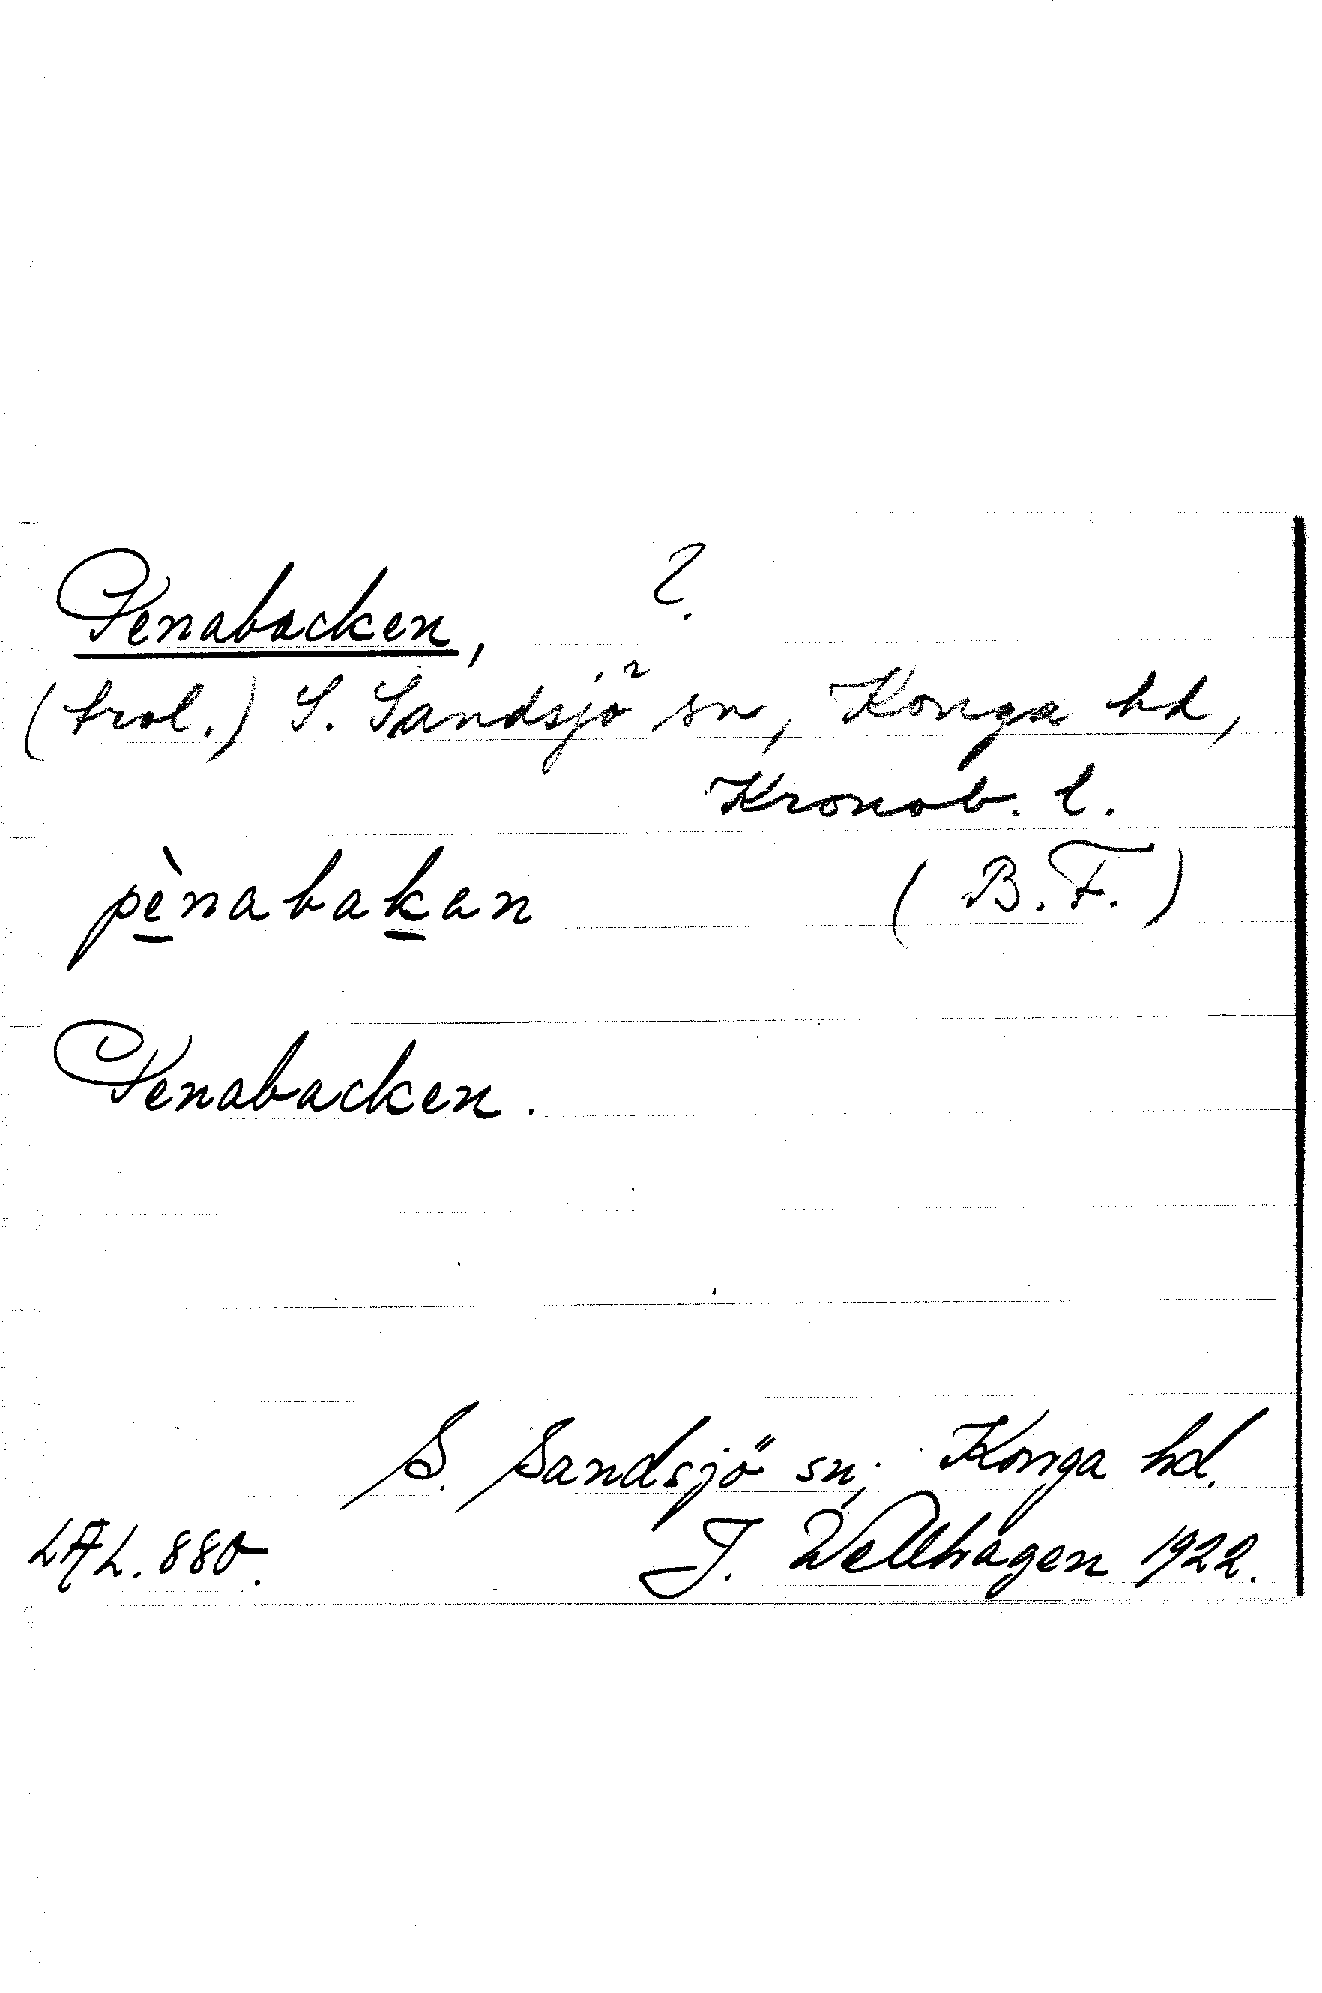 Penabacken, ?
(trol.) S. Sandsjö sn, Konga hd,
Kronob. l.
pènabakan (B.F.)
Penabacken.
S. Sandsjö sn, Konga hd.
LAL. 880. J. Wellhagen 1922.